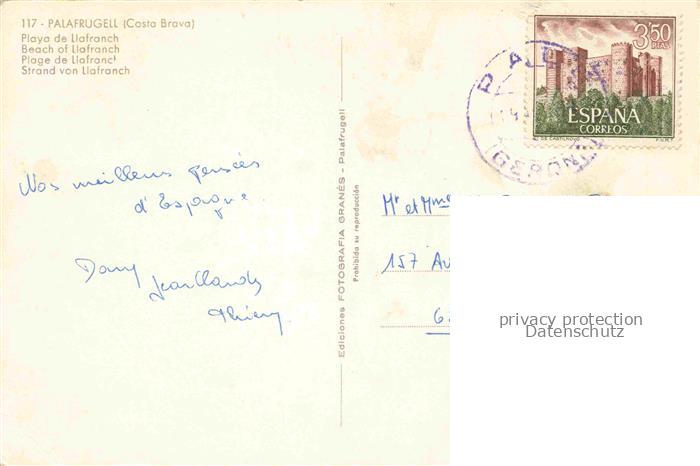 117 - PALAFRUGELL (Costa Brava)
Playa de Llafranch
Beach of Llafranch
Plage de Llafranch
Strand von Llafranch
3'50
PTAS
ESPAÑA
CORREOS
DE CASTILNOVO
F.N.M.T.
GERONA
Nos meilleurs pensées
d'Espagne
Dany Jean Claude
Thierry
Ediciones FOTOGRAFIA GRANÉS - Palafrugell
Prohibida su reproducción
Mr et Mme
157 Av
6
privacy protection
Datenschutz